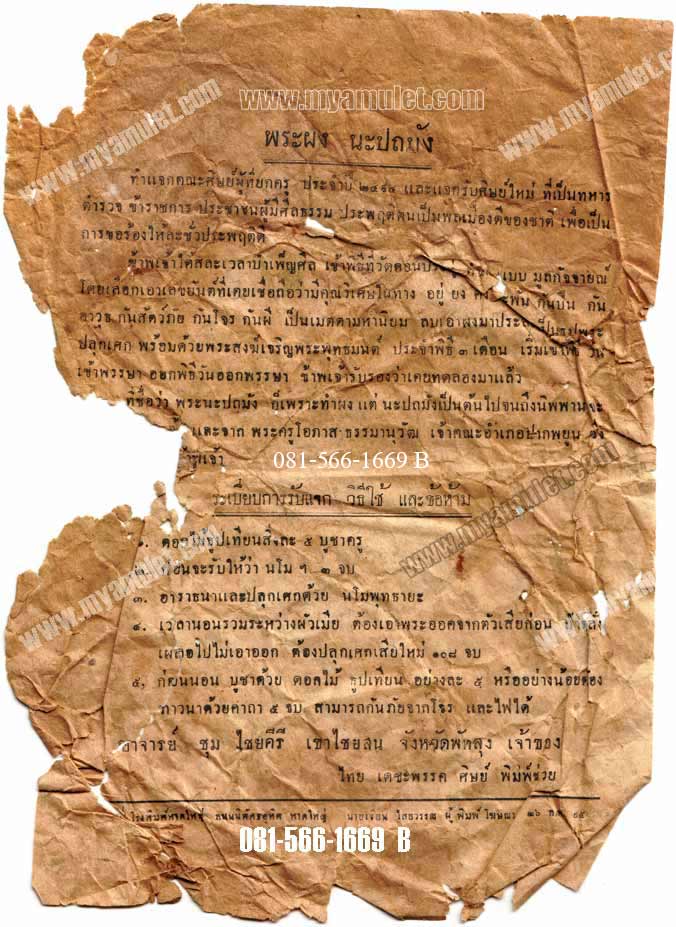 www.myamulet.com
www.myamulet.com
www.myamulet.com
พระผง นะปถมัง
ทำแจกคณะศิษย์ผู้ที่ยกครู ประจำปี ๒๔๙๔ และแจกรับศิษย์ใหม่ ที่เป็นทหาร
ตำรวจ ข้าราชการ ประชาชนผู้มีศีลธรรม ประพฤติตนเป็นพลเมืองดีของชาติ เพื่อเป็น
การขอร้องให้ละชั่วประพฤติดี
ข้าพเจ้าได้สละเวลาบำเพ็ญศีล เข้าพิธีที่วัดดอน แบบ มูลกัจจายณ์
โดยเลือกเอาเลขยันต์ที่เคยเชื่อถือว่ามีคุณวิเศษในทาง อยู่ ยง คง กันปืน กัน
อาวุธ กันสัตว์ภัย กันโจร กันผี เป็นเมตตามหานิยม ลบเอาผงมาประสมเป็นรูปพระ
ปลุกเศก พร้อมด้วยพระสงฆ์เจริญพระพุทธมนต์ ประจำพิธี ๓ เดือน เริ่มเข้าพิธี วัน
เข้าพรรษา ออกพิธีวันออกพรรษา ข้าพเจ้ารับรองว่าเคยทดลองมาแล้ว
ที่ชื่อว่า พระนะปถมัง ก็เพราะทำผง แต่ นะปถมังเป็นต้นไปจนถึงนิพพานจะ
และจาก พระครูโอภาส ธรรมานุวัฒ เจ้าคณะอำเภอปากพยูน ซึ่ง
ข้าพเจ้า
081-566-1669 B
ระเบียบการรับแจก วิธีใช้ และข้อห้าม
www.myamulet.com
www.myamulet.com
๑. ดอกไม้ธูปเทียนสิ่งละ ๕ บูชาครู
๒. ก่อนจะรับให้ว่า นโม ฯ ๓ จบ
๓. อาราธนาและปลุกเศกด้วย นโมพุทธายะ
๔. เวลานอนรวมระหว่างผัวเมีย ต้องเอาพระออกจากตัวเสียก่อน
เผลอไปไม่เอาออก ต้องปลุกเศกเสียใหม่ ๑๐๘ จบ
๕, ก่อนนอน บูชาด้วย ดอกไม้ ธูปเทียน อย่างละ ๕ หรืออย่างน้อยต้อง
ภาวนาด้วยคาถา ๕ จบ สามารถกันภัยจากโจร และไฟได้
อาจารย์ ชุม ไชยคีรี เขาไชยสน จังหวัดพัทลุง เจ้าของ
ไทย เดชะพรรค ศิษย์ พิมพ์ช่วย
โรงพิมพ์หาดใหญ่ ถนนนิพัทธอุทิศ หาดใหญ่ ผู้พิมพ์โฆษณา ๒๖ ก.ค. ๙๕
081-566-1669 B